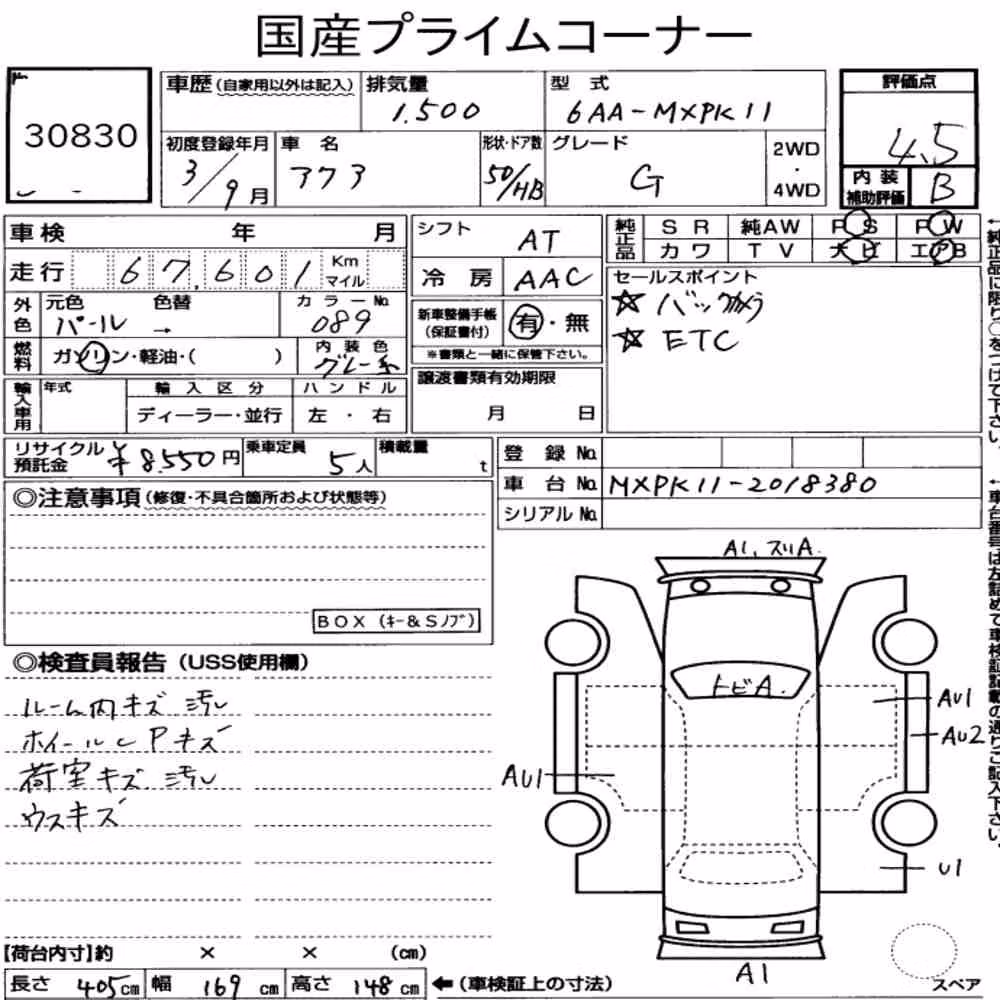 国産プライムコーナー
30830
車歴 (自家用以外は記入)
排気量
1.500
型式
6AA-MXPK11
評価点
4.5
内装補助評価
B
初度登録年月
3/9月
車名
アクア
形状・ドア数
5D/HB
グレード
G
2WD
・
4WD
車検 年 月
シフト
AT
純正品
SR 純AW PS PW
カワ TV ナビ エアB
走行 67,601 Km マイル
冷房
AAC
セールスポイント
☆ バックカメラ
☆ ETC
外色
元色 色替
パール →
カラーNo.
089
新車整備手帳
(保証書付)
有・無
※書類と一緒に保管下さい。
燃料
ガソリン・軽油・( )
内装色
グレー系
譲渡書類有効期限
月 日
輸入車用
年式
輸入区分
ディーラー・並行
ハンドル
左・右
リサイクル預託金
¥8.550円
乗車定員
5人
積載量
t
登録No.
車台No. MXPK11-2018380
シリアルNo.
◎注意事項 (修復・不具合箇所および状態等)
BOX (キー&Sノブ)
◎検査員報告 (USS使用欄)
ルーム内キズ 汚レ
ホイールCPキズ
荷室キズ 汚レ
ウスキズ
A1. スリA.
トビA.
AU1
AU2
AU1
U1
A1
スペア
【荷台内寸】約 × × (cm)
長さ 405cm 幅 169cm 高さ 148cm ←(車検証上の寸法)
←純正品に限り○をつけて下さい。
←車台番号は左詰めで車検証記載の通りご記入下さい。